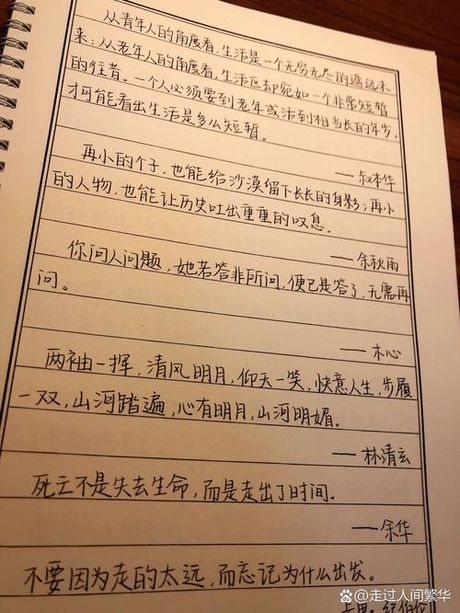 从青年人的角度看,生活是一个无穷无尽的遥远未
来;从老年人的角度看,生活区却宛如一个非常短暂
的往昔。一个人必须要到老年或活到相当长的年岁,
才可能看出生活是多么短暂。
——叔本华
再小的个子,也能给沙漠留下长长的身影;再小
的人物,也能让历史吐出重重的叹息。
——余秋雨
你问人问题,她若答非所问,便已是答了,无需再
问。
——木心
两袖一挥,清风明月,仰天一笑,快意人生,步履
一双,山河踏遍,心有明月,山河明媚。
——林清玄
死亡不是失去生命,而是走出了时间。
——余华
不要因为走的太远,而忘记为什么出发。
纪伯伦
@走过人间繁华